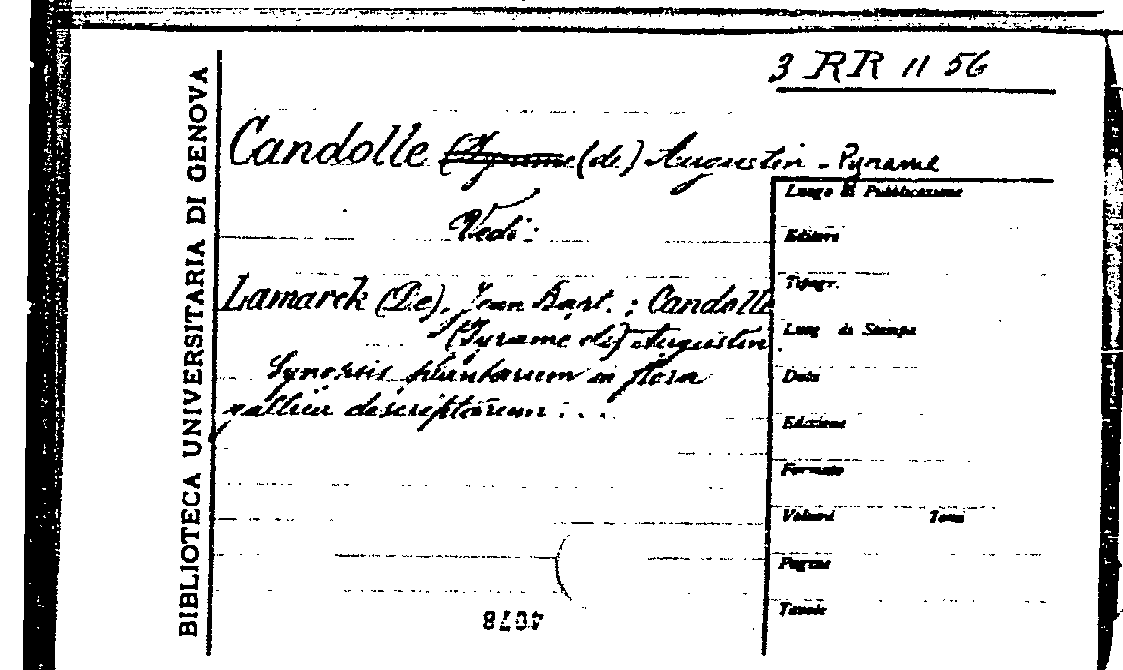 BIBLIOTECA UNIVERSITARIA DI GENOVA
3 RR 11 56
Candolle (de) Augustin - Pyrame
Vedi:
Lamarck (De), Jean Bapt. ; Candolle
(Pyrame de) Augustin
Synopsis plantarum in flora
gallica descriptarum . . .
Luogo di Pubblicazione
Editore
Tipogr.
Luog di Stampa
Data
Edizione
Formato
Volumi Tomi
Pagine
Tavole
4078